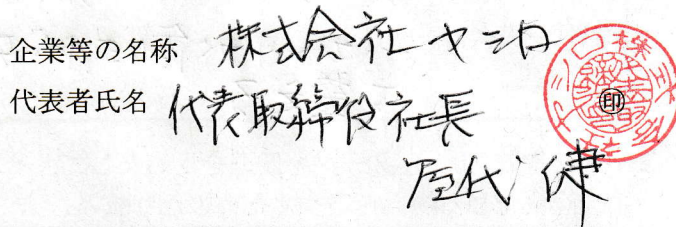 企業等の名称 株式会社ヤシロ
代表者氏名 代表取締役社長
屋代 健
㊞